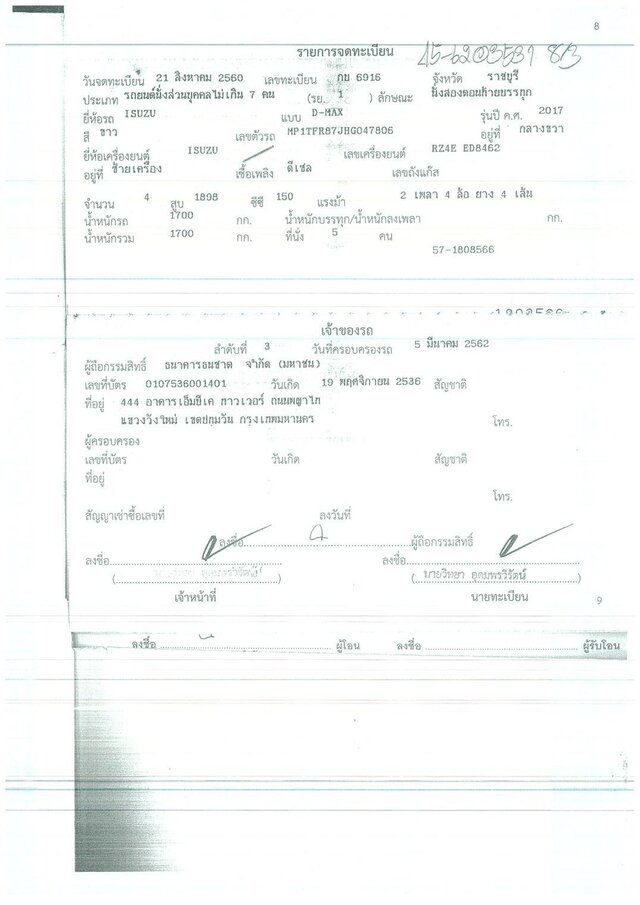 8
รายการจดทะเบียน
วันจดทะเบียน 21 สิงหาคม 2560 เลขทะเบียน กน 6916 จังหวัด ราชบุรี
ประเภท รถยนต์นั่งส่วนบุคคลไม่เกิน 7 คน (รย. 1 ) ลักษณะ นั่งสองตอนท้ายบรรทุก
ยี่ห้อรถ ISUZU แบบ D-MAX รุ่นปี ค.ศ. 2017
สี ขาว เลขตัวรถ MP1TFR87JHG047806 อยู่ที่ กลางขวา
ยี่ห้อเครื่องยนต์ ISUZU เลขเครื่องยนต์ RZ4E ED8462
อยู่ที่ ซ้ายเครื่อง เชื้อเพลิง ดีเซล เลขถังแก๊ส
จำนวน 4 สูบ 1898 ซีซี 150 แรงม้า 2 เพลา 4 ล้อ ยาง 4 เส้น
น้ำหนักรถ 1700 กก. น้ำหนักบรรทุก/น้ำหนักลงเพลา กก.
น้ำหนักรวม 1700 กก. ที่นั่ง 5 คน
57-1808566
เจ้าของรถ
ลำดับที่ 3 วันที่ครอบครองรถ 5 มีนาคม 2562
ผู้ถือกรรมสิทธิ์ ธนาคารธนชาต จำกัด (มหาชน)
เลขที่บัตร 0107536001401 วันเกิด 19 พฤศจิกายน 2536 สัญชาติ
ที่อยู่ 444 อาคารเอ็มบีเค ทาวเวอร์ ถนนพญาไท
แขวงวังใหม่ เขตปทุมวัน กรุงเทพมหานคร
โทร.
ผู้ครอบครอง
เลขที่บัตร วันเกิด สัญชาติ
ที่อยู่
โทร.
สัญญาเช่าซื้อเลขที่ ลงวันที่
ลงชื่อ ผู้ถือกรรมสิทธิ์
ลงชื่อ ลงชื่อ
( ) ( นายวิทยา อุดมพรวิรัตน์ )
เจ้าหน้าที่ นายทะเบียน
9
ลงชื่อ ผู้โอน ลงชื่อ ผู้รับโอน